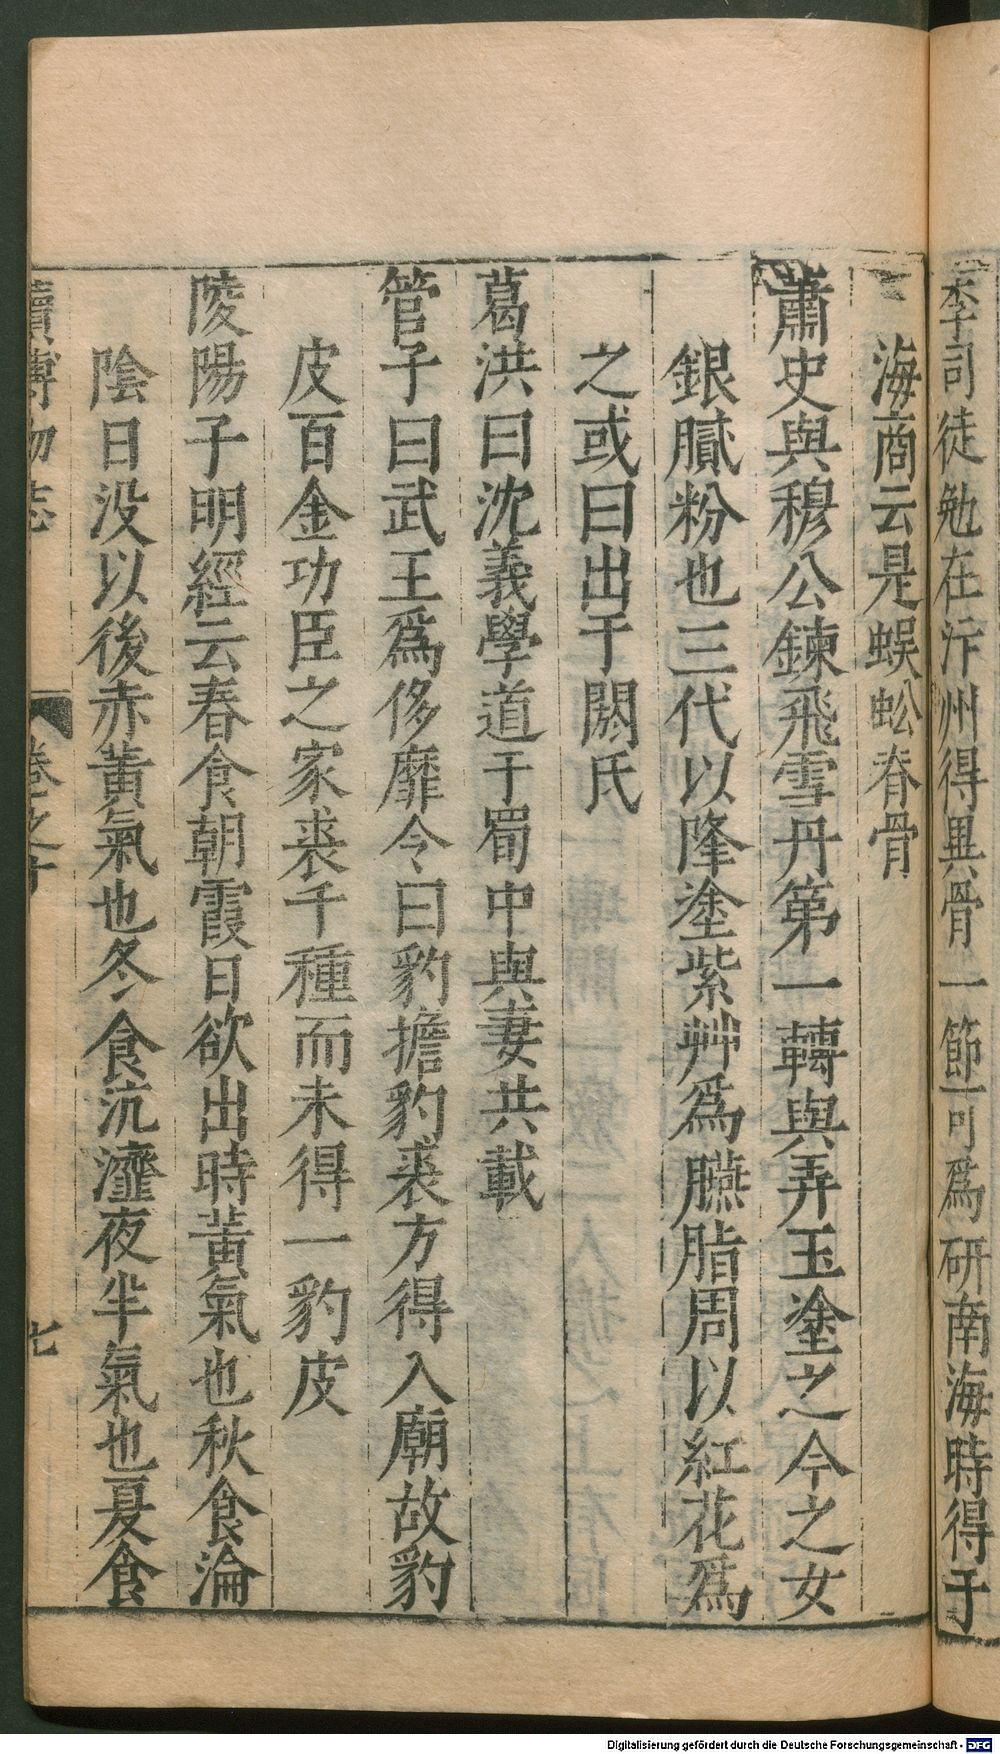 李司徒勉在汴州得異骨一節可爲研南海時得于
海商云是蜈蚣脊骨
蕭史與穆公鍊飛雪丹第一轉與弄玉塗之今之女
銀膩粉也三代以降塗紫艸爲臙脂周以紅花爲
之或曰出于閼氏
葛洪曰沈義學道于蜀中與妻共載
管子曰武王爲侈靡令曰豹擔豹裘方得入廟故豹
皮百金功臣之家裘千種而未得一豹皮
陵陽子明經云春食朝霞日欲出時黃氣也秋食淪
陰日没以後赤黃氣也冬食沆瀣夜半氣也夏食
續博物志 卷之十 七
Digitalisierung gefördert durch die Deutsche Forschungsgemeinschaft - DFG